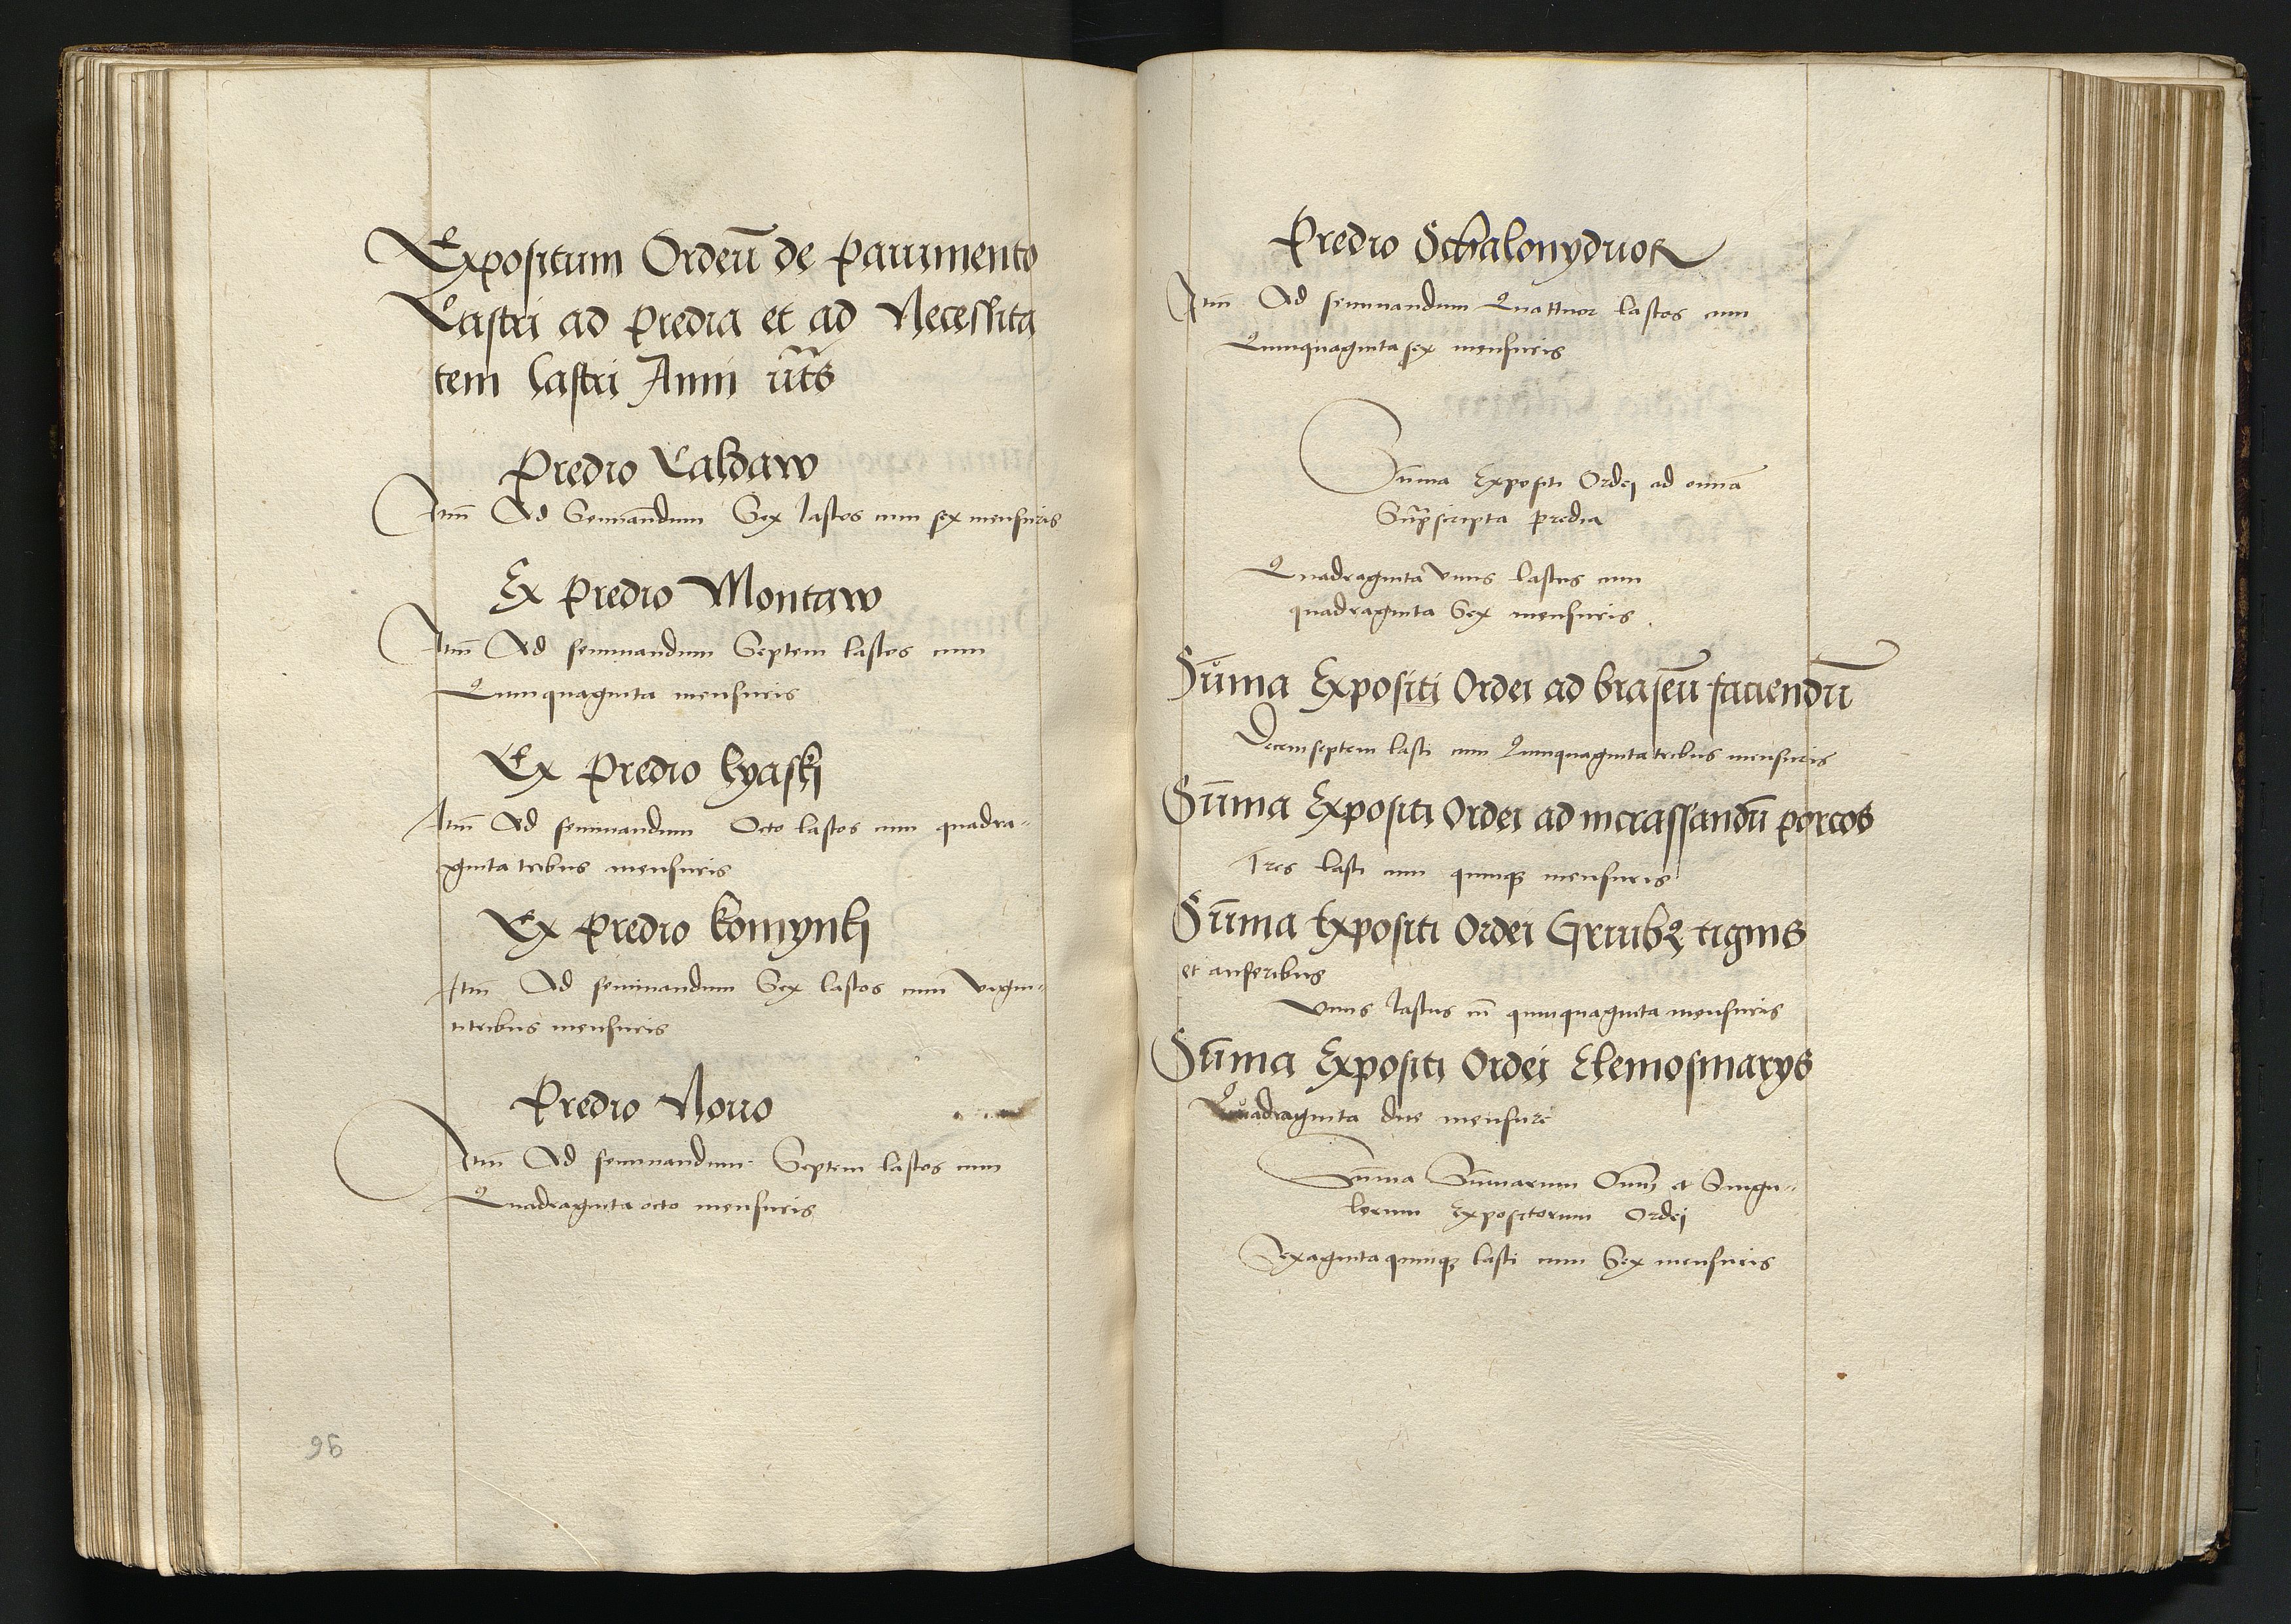 Expositum Ordeu̅ de pauimento
Castri ad predia et ad Necessita
tem Castri Anni ut̅s
Predio Caldaw
Itm̅ Ad Semina̅dum Sex lastos cum sex mensuris
Ex predio Montaw
Itm̅ Ad seminandum Septem lastos cum
Quinquaginta mensuris
Ex predio lyaskj
Itm̅ Ad seminandum Octo lastos cum quadra-
ginta tribus mensuris
Ex predio komynkj
Itm̅ Ad seminandum Sex lastos cum vigin-
titribus mensuris
Predio Nouo
Itm̅ Ad seminandum Septem lastos cum
Quadraginta octo mensuris
96
Predio Schalonyduor
Itm̅ Ad seminandum Quattuor lastos cum
Quinquaginta sex mensuris
Su̅ma Expositi Ordej ad omn̅ia
Sup̅scripta predia
Quadraginta vnus lastus cum
quadraginta Sex mensuris
Su̅ma Expositi Ordei ad braseu̅ faciendu̅
Decemseptem lasti cum Quinquaginta tribus mensuris
Su̅ma Expositi Ordei ad incrassandu̅ porcos
Tres lasti cum quinqꝫ mensuris
Su̅ma Expositi Ordei Gruibꝫ cignis
et anseribus
Vnus lastus cu̅ quinquaginta mensuris
Su̅ma Expositi Ordej Elemosinarys
Quadraginta due mensure
Su̅ma Su̅marum Om̅ et Singu-
lorum Expositorum Ordej
Sexaginta quinqꝫ lasti cum Sex mensuris